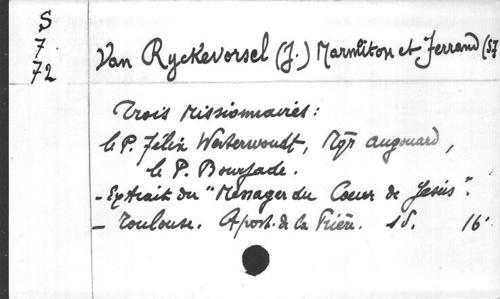 S
7.
72
Van Ryckevorsel (J.) Marmiton et Ferrand (S7
Trois Missionnaires :
le P. Félix Westerwoudt, Mgr Augouard,
le P. Boursade.
- Extrait du "Messager du Coeur de Jésus".
- Toulouse. Apost. de la Prière. 16°